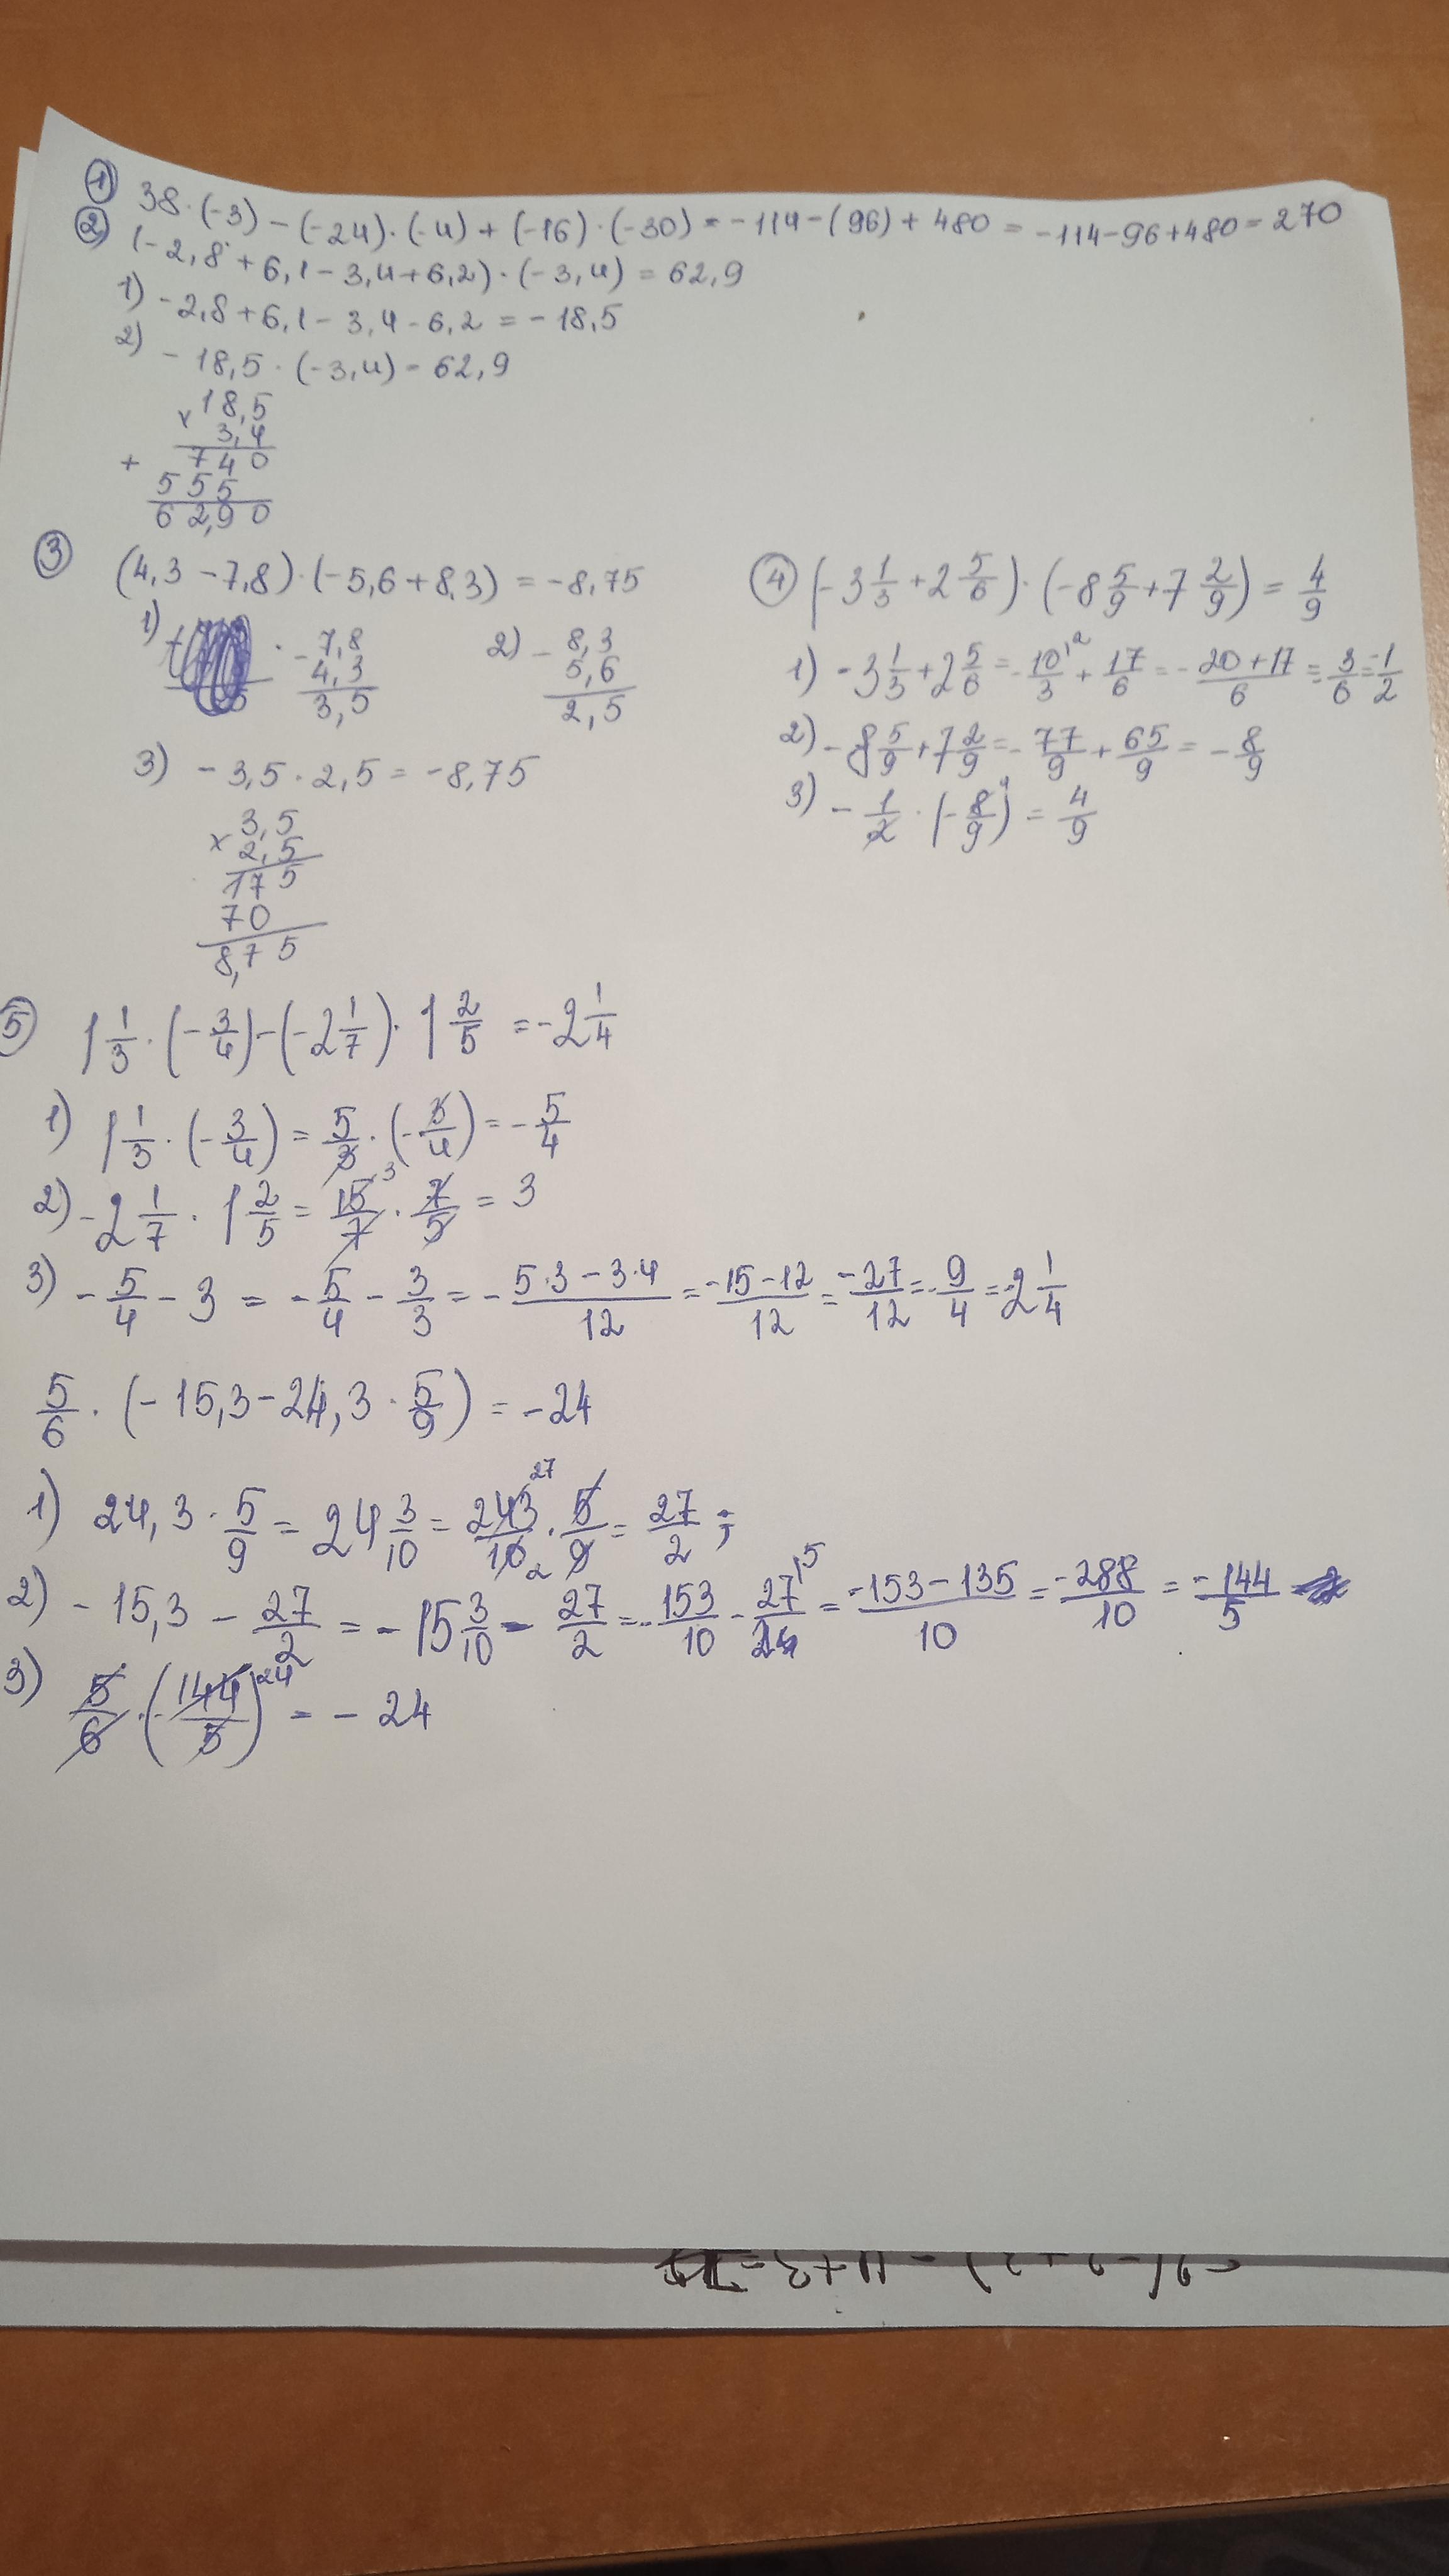 1) 38·(-3)-(-24)·(-4)+(-16)·(-30)=-114-(96)+480=-114-96+480=270
2) (-2,8+6,1-3,4+6,2)·(-3,4)=62,9
1) -2,8+6,1-3,4-6,2=-18,5
2) -18,5·(-3,4)=62,9
× 18,5
3,4
+ 740
555
62,90
3 (4,3-7,8)·(-5,6+8,3)=-8,75
1) - 7,8
4,3
3,5
2) - 8,3
5,6
2,5
3) -3,5·2,5=-8,75
× 3,5
2,5
175
70
8,75
4 (-3 1/3+2 5/6)·(-8 5/9+7 2/9)=4/9
1) -3 1/3+2 5/6=-10/3 ²+17/6=-20+17/6=3/6=-1/2
2) -8 5/9+7 2/9=-77/9+65/9=-8/9
3) -1/2·(-8/9) ⁴=4/9
5 1 1/3·(-3/4)-(-2 1/7)·1 2/5=-2 1/4
1) 1 1/3·(-3/4)=5/3·(-3/4)=-5/4
2) -2 1/7·1 2/5=15/7 ³·7/5=3
3) -5/4-3=-5/4-3/3=-5·3-3·4/12=-15-12/12=-27/12=-9/4=-2 1/4
5/6·(-15,3-24,3·5/9)=-24
1) 24,3·5/9=24 3/10=243/10 27 2·5/9=27/2;
2) -15,3-27/2=-15 3/10-27/2=-153/10-27/2 5=-153-135/10=-288/10=-144/5
3) 5/6·(-144/5) 24=-24